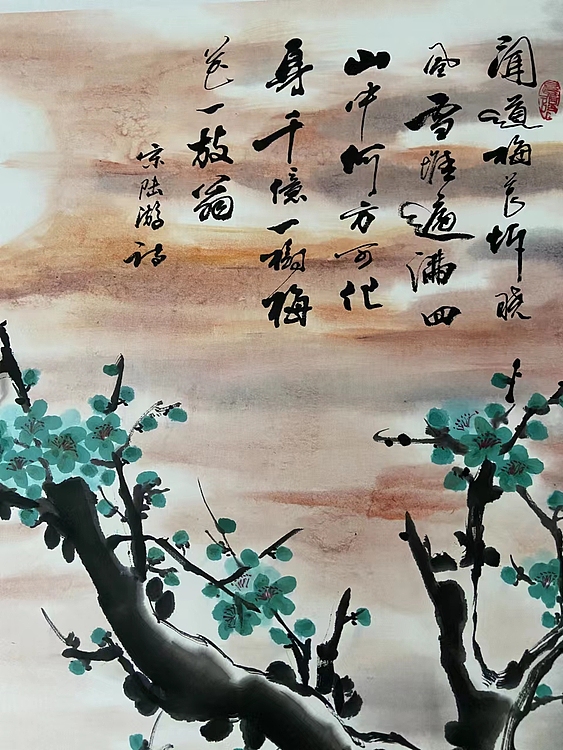 闻道梅花坼晓
風雪堆遍滿四
山中何方可化
身千億一樹梅
花一放翁
宋陆游诗